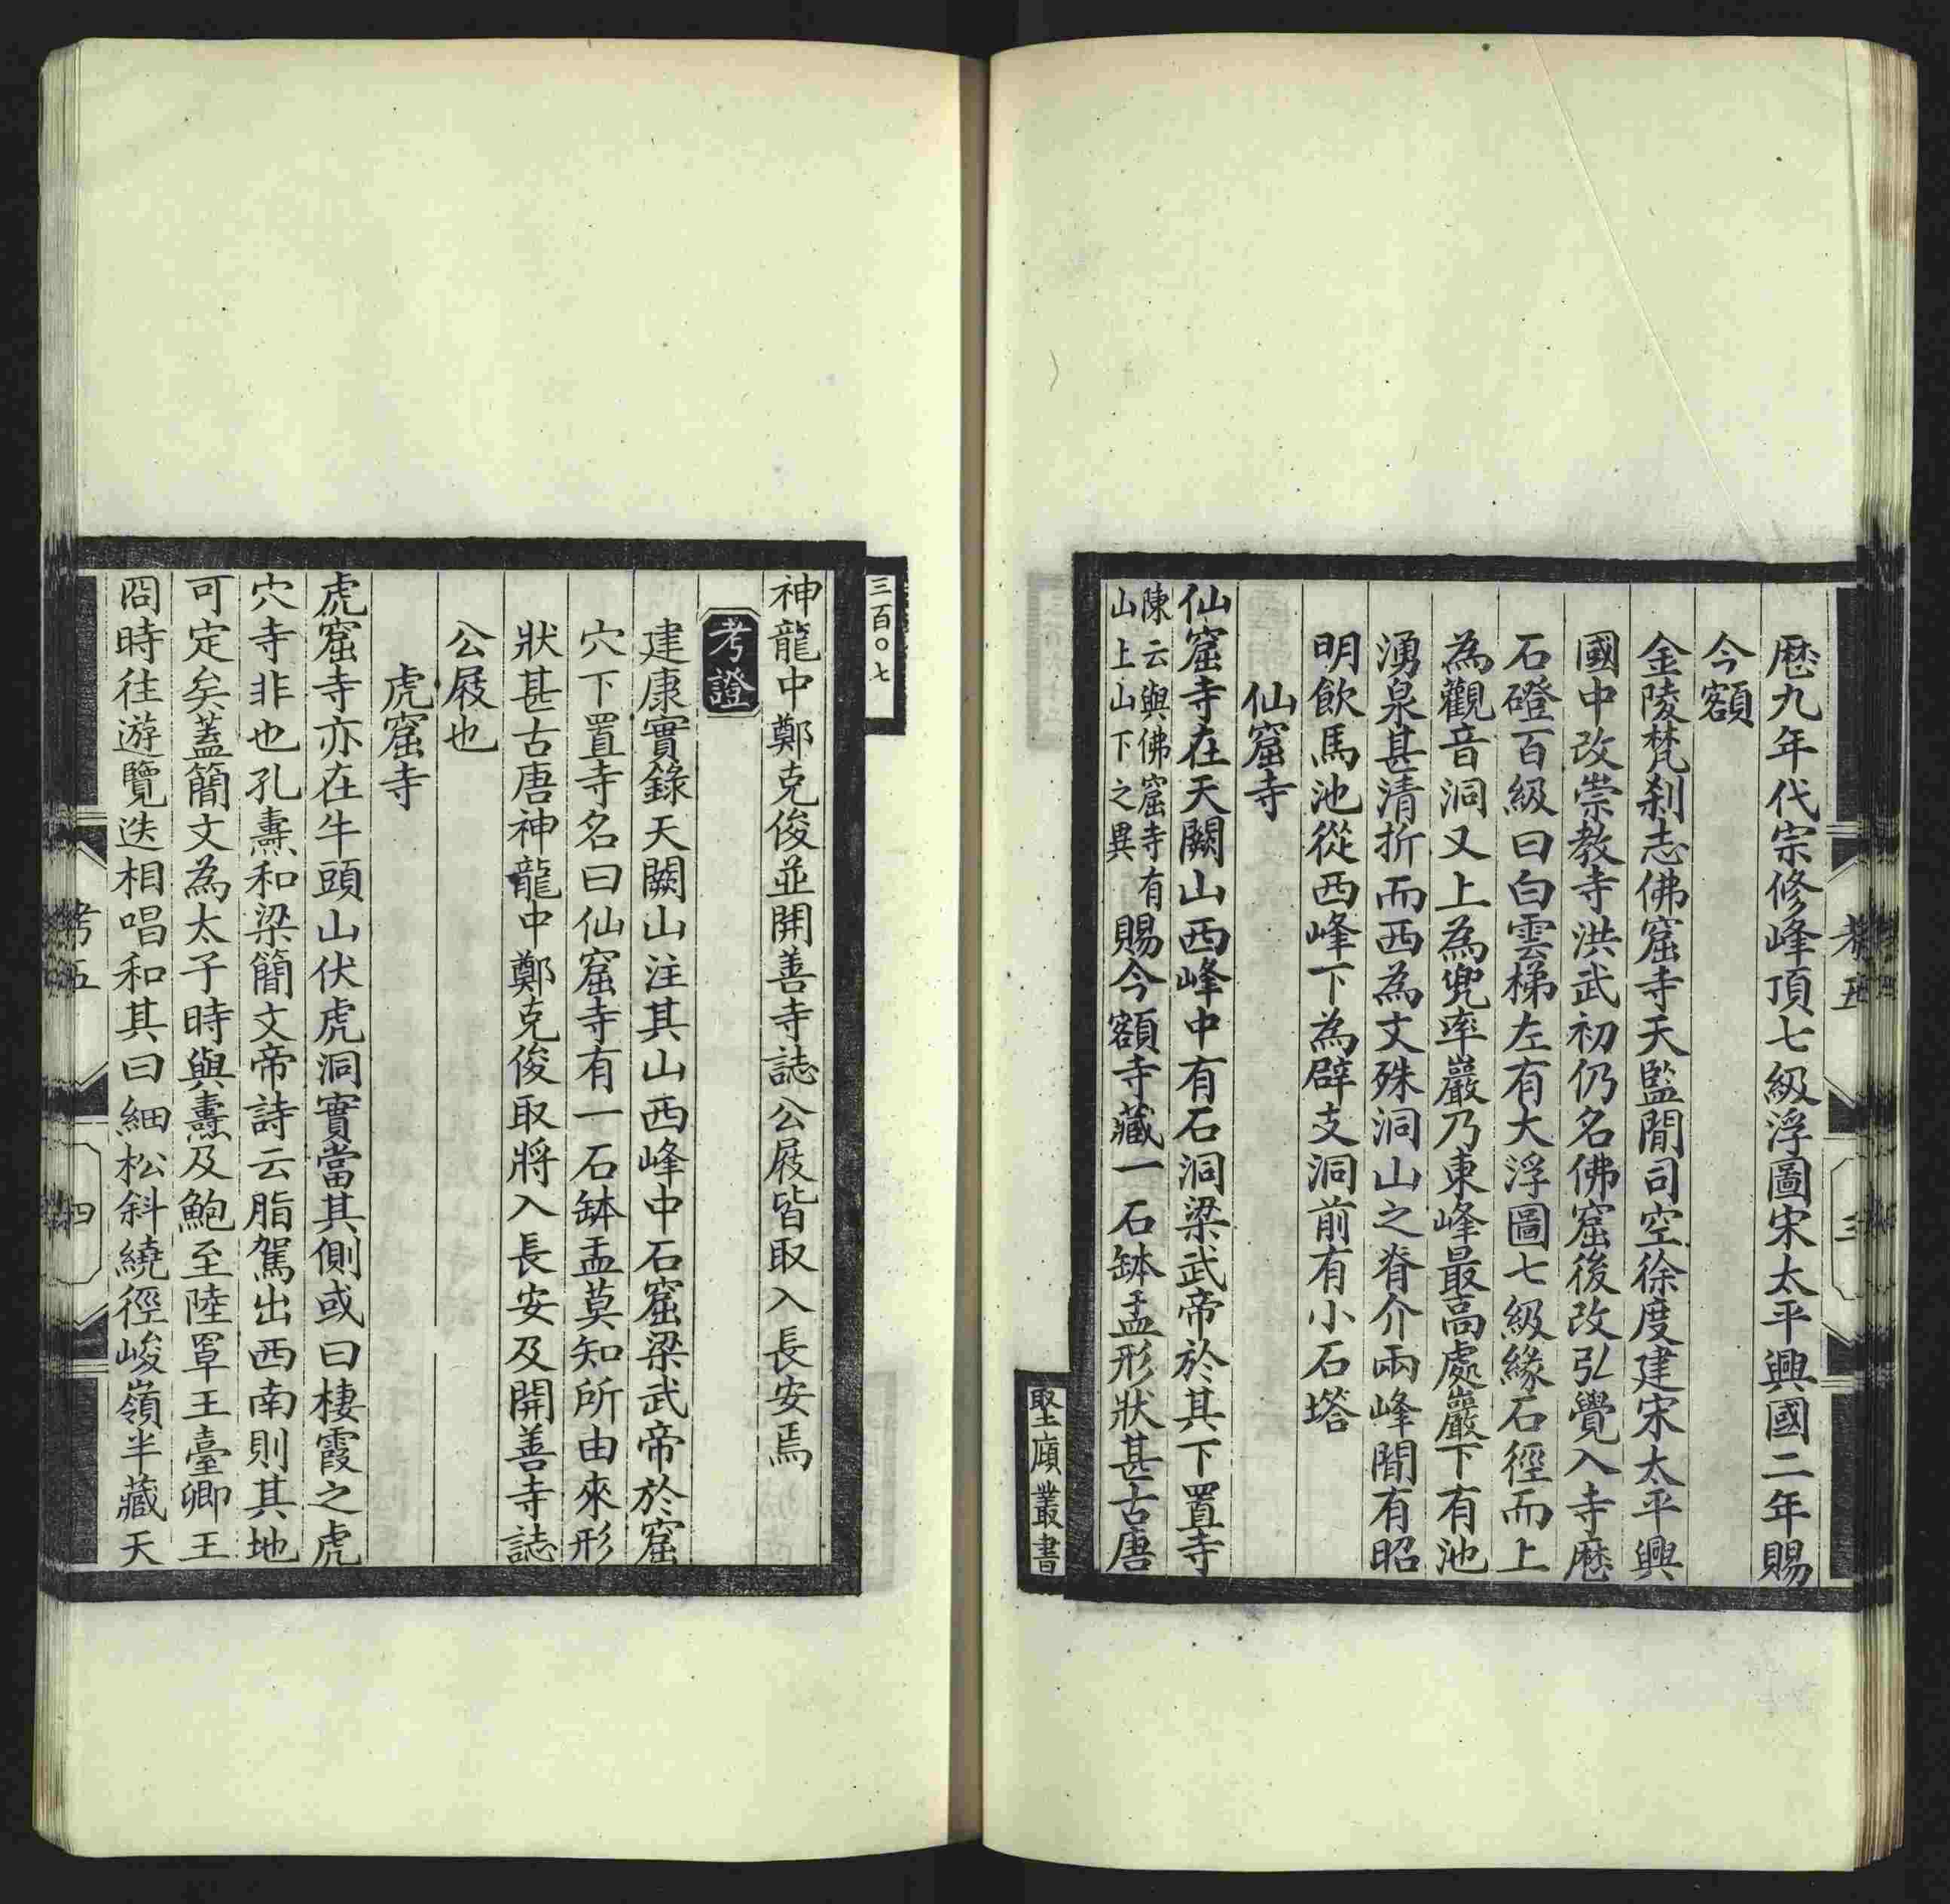 歷九年代宗修峰頂七級浮圖宋太平興國二年賜
今額
金陵梵刹志佛窟寺天監閒司空徐度建宋太平興
國中改崇教寺洪武初仍名佛窟後改弘覺入寺歷
石磴百級曰白雲梯左有大浮圖七級緣石徑而上
為觀音洞又上為兜率巖乃東峰最高處巖下有池
湧泉甚清折而西為文殊洞山之脊介兩峰閒有昭
明飲馬池從西峰下為辟支洞前有小石塔
仙窟寺
仙窟寺在天闕山西峰中有石洞梁武帝於其下置寺
陳云與佛窟寺有
山上山下之異
賜今額寺藏一石缽盂形狀甚古唐
堅頋叢書
三百〇七
神龍中鄭克俊並開善寺誌公屐皆取入長安焉
考證
建康實錄天闕山注其山西峰中石窟梁武帝於窟
穴下置寺名曰仙窟寺有一石缽盂莫知所由來形
狀甚古唐神龍中鄭克俊取將入長安及開善寺誌
公屐也
虎窟寺
虎窟寺亦在牛頭山伏虎洞實當其側或曰棲霞之虎
穴寺非也孔燾和梁簡文帝詩云脂駕出西南則其地
可定矣蓋簡文為太子時與燾及鮑至陸罩王臺卿王
冏時往遊覽迭相唱和其曰細松斜繞徑峻嶺半藏天
考五
四